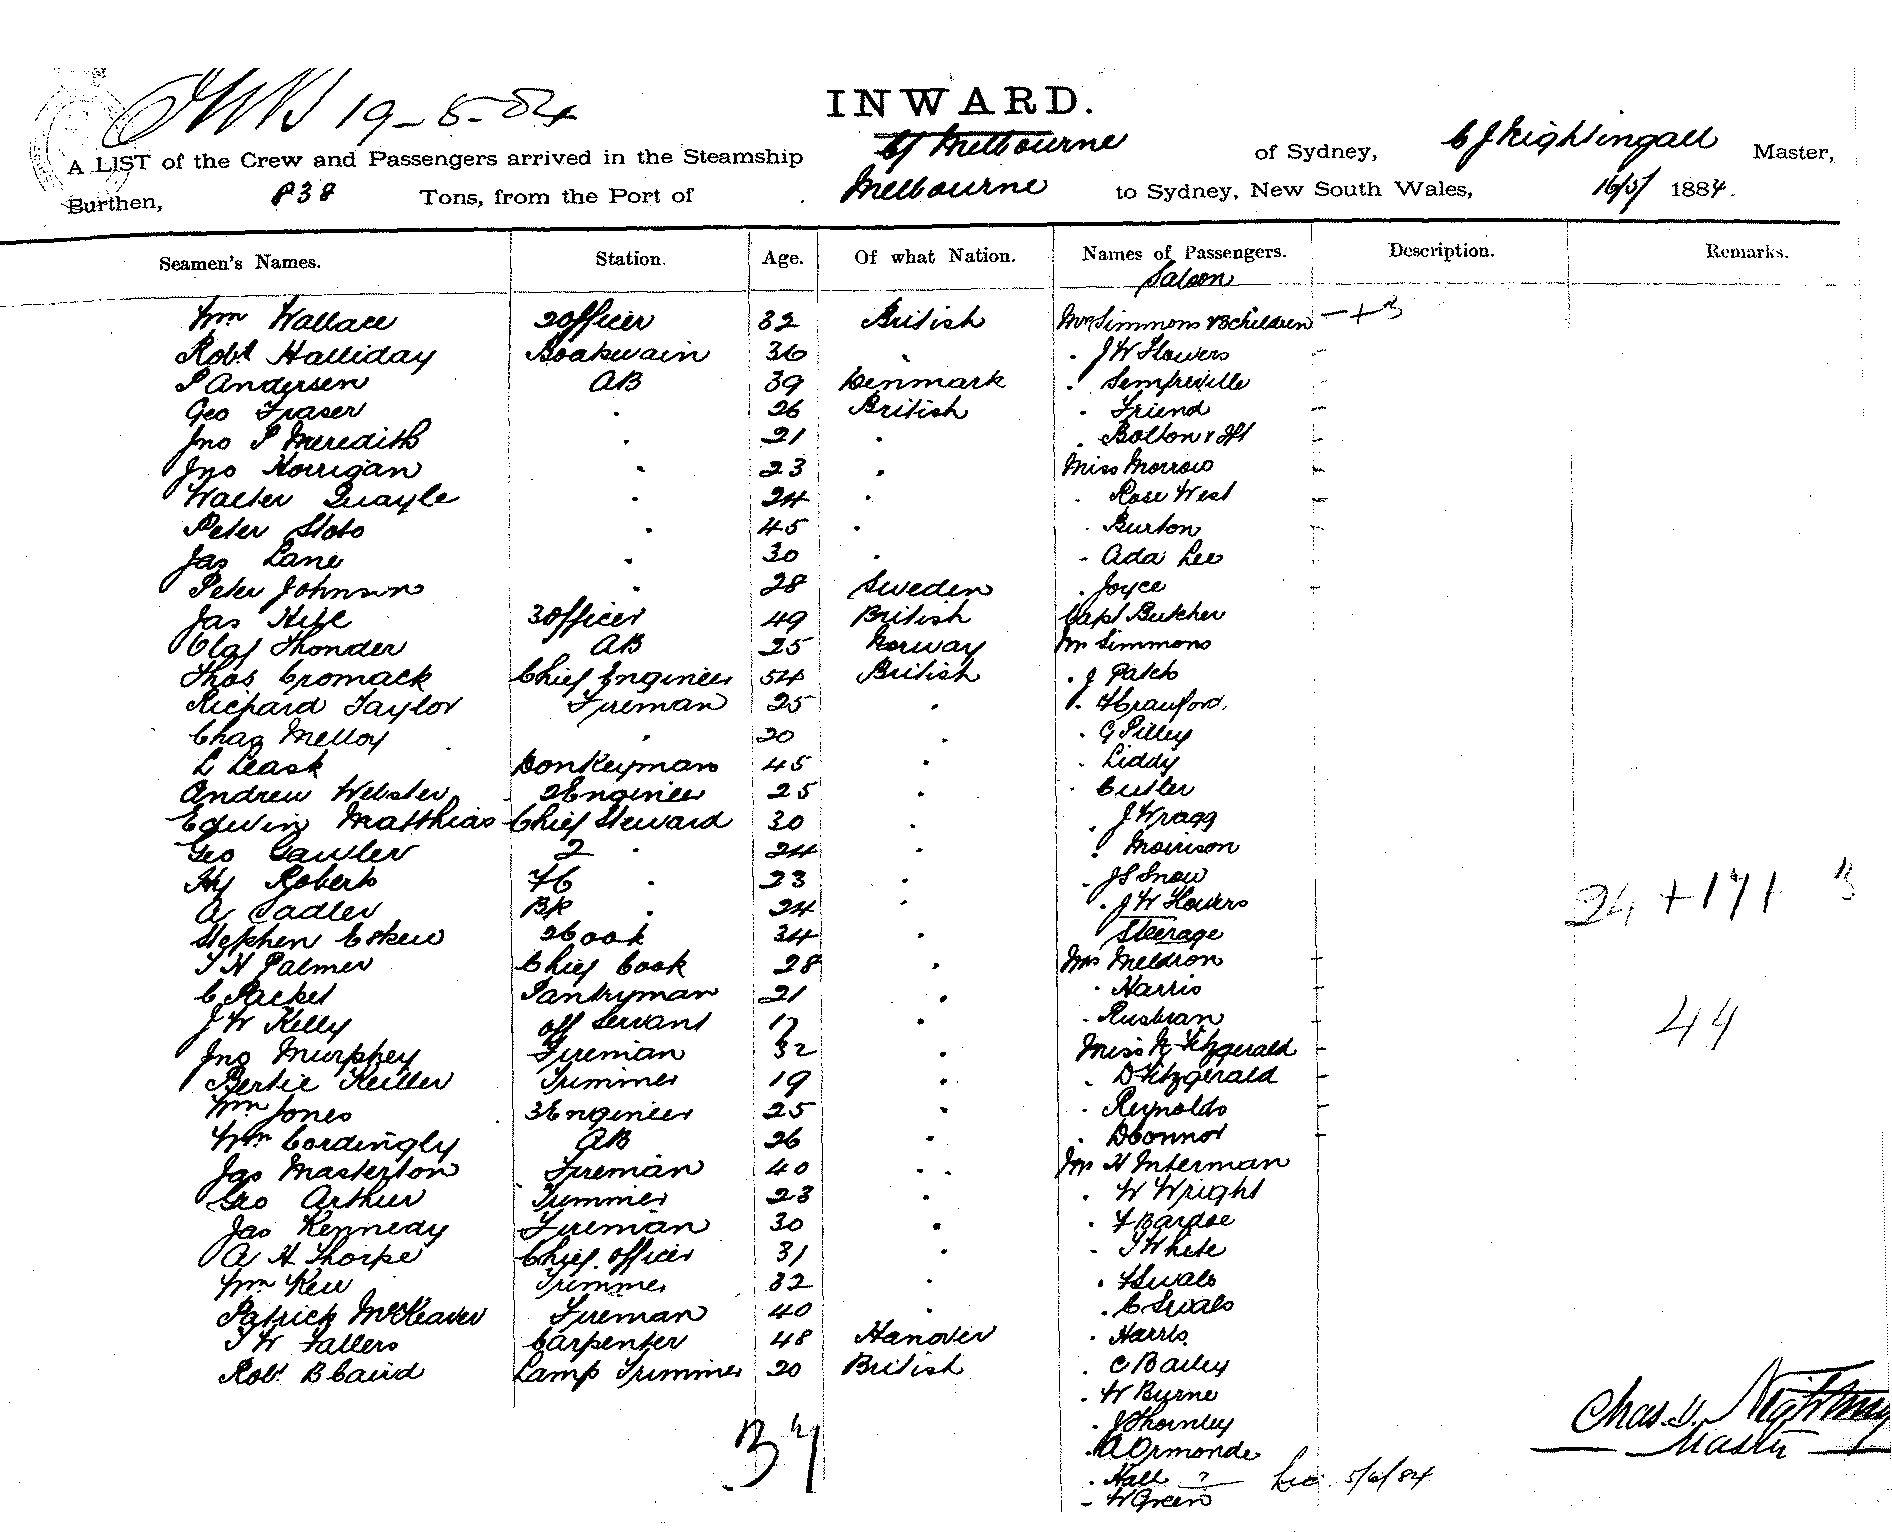 19-5-84
INWARD.
A LIST of the Crew and Passengers arrived in the Steamship Cy Melbourne of Sydney, C J Nightingall Master,
Burthen, 838 Tons, from the Port of Melbourne to Sydney, New South Wales, 16/5/ 1884.
Seamen's Names. Station. Age. Of what Nation. Names of Passengers. Description. Remarks.
Saloon
Wm Wallace 2 Officer 32 British Mrs Simmons & 3 children - + 3
Robt Halliday Boatswain 36 . . J W Flowers -
P Andersen AB 39 Denmark . Semfreville -
Geo Fraser . 26 British . Friend -
Jno P Meredith . 21 . . Bolton & Ft -
Jno Horrigan . 23 . Miss Morrow -
Walter Quayle . 24 . . Rose West -
Peter Stoto . 45 . . Burton -
Jas Lane . 30 . . Ada Lee -
Peter Johnson . 28 Sweden . Joyce -
Jas Hill 3 Officer 49 British Capt Butcher
Olaf Thonder AB 25 Norway Mr Simmons
Thos Cromack Chief Engineer 54 British . J Patch
Richard Taylor Fireman 25 . . H Crauford.
Chas Melloy . 20 . . G Pilley
L Leask Donkeyman 45 . . Liddy
Andrew Webster 2 Engineer 25 . . Cutler
Edwin Matthias Chief Steward 30 . . J Wragg
Geo Gawler 2 . 24 . . Morrison
Hy Roberts FC . 23 . . J S Snow
A Sadler BK . 24 . . J W Flowers 24 + 17 + 3
Stephen Eskew 2 Cook 34 . Steerage
T H Palmer Chief Cook 28 . Mrs Meldron -
C Packet Pantryman 21 . . Harris -
J W Kelly Off Servant 17 . . -
Jno Murphey Fireman 32 . Miss K Fitzgerald - 44
Bertie Keiller Trimmer 19 . . D Fitzgerald -
Wm Jones 3 Engineer 25 . . Reynolds -
Wm Cordingly AB 26 . . O'Connor -
Jas Masterton Fireman 40 . . Mr H Interman
Geo Arthur Trimmer 23 . . W Wright
Jas Kennedy Fireman 30 . . F Bardoe
A H Thorpe Chief Officer 31 . . T White
Wm Kew Trimmer 32 . . H Swals
Patrick McCleaver Fireman 40 . . C Swals
T W Fallers Carpenter 48 Hanover . Harris
Robt B Caird Lamp Trimmer 20 British . C Bailey
. W Byrne
. J Thornley
37 . A Ormonde
. Hall ? 5/6/84
- W Green
Chas J. Nightingall
Master